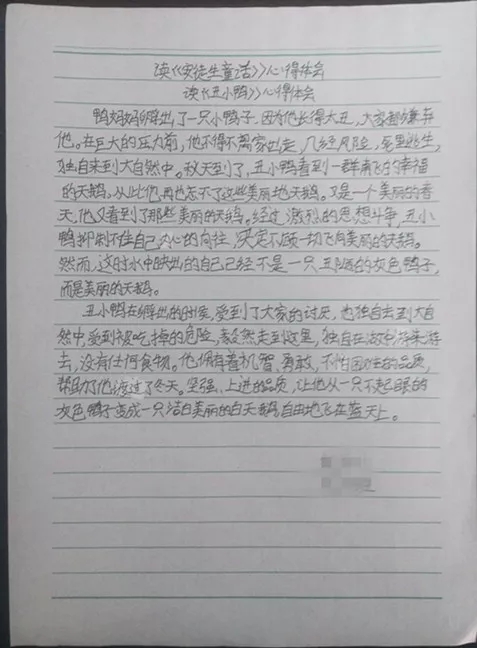 读《安徒生童话》心得体会
读《丑小鸭》心得体会
鸭妈妈孵出了一只小鸭子，因为他长得太丑，大家都嫌弃
他。在巨大的压力前，他不得不离家出走，几经风险，死里逃生，
独自来到大自然中。秋天到了，丑小鸭看到一群南飞的幸福
的天鹅，从此他再也忘不了这些美丽地天鹅。又是一个美丽的春
天，他又看到了那些美丽的天鹅。经过激烈的思想斗争，丑小
鸭抑制不住自己内心的向往，决定不顾一切飞向美丽的天鹅。
然而，这时水中映出的自己已经不是一只丑陋的灰色鸭子，
而是美丽的天鹅。
丑小鸭在孵出的时候，受到了大家的讨厌，也独自去到大自
然中，受到被吃掉的危险，毅然走到这里，独自在湖中游来游
去，没有任何食物。他拥有着机智、勇敢，不怕困难的品质，
帮助了他渡过了冬天。坚强、上进的品质，让他从一只不起眼的
灰色鸭子变成一只洁白美丽的白天鹅，自由地飞在蓝天上。